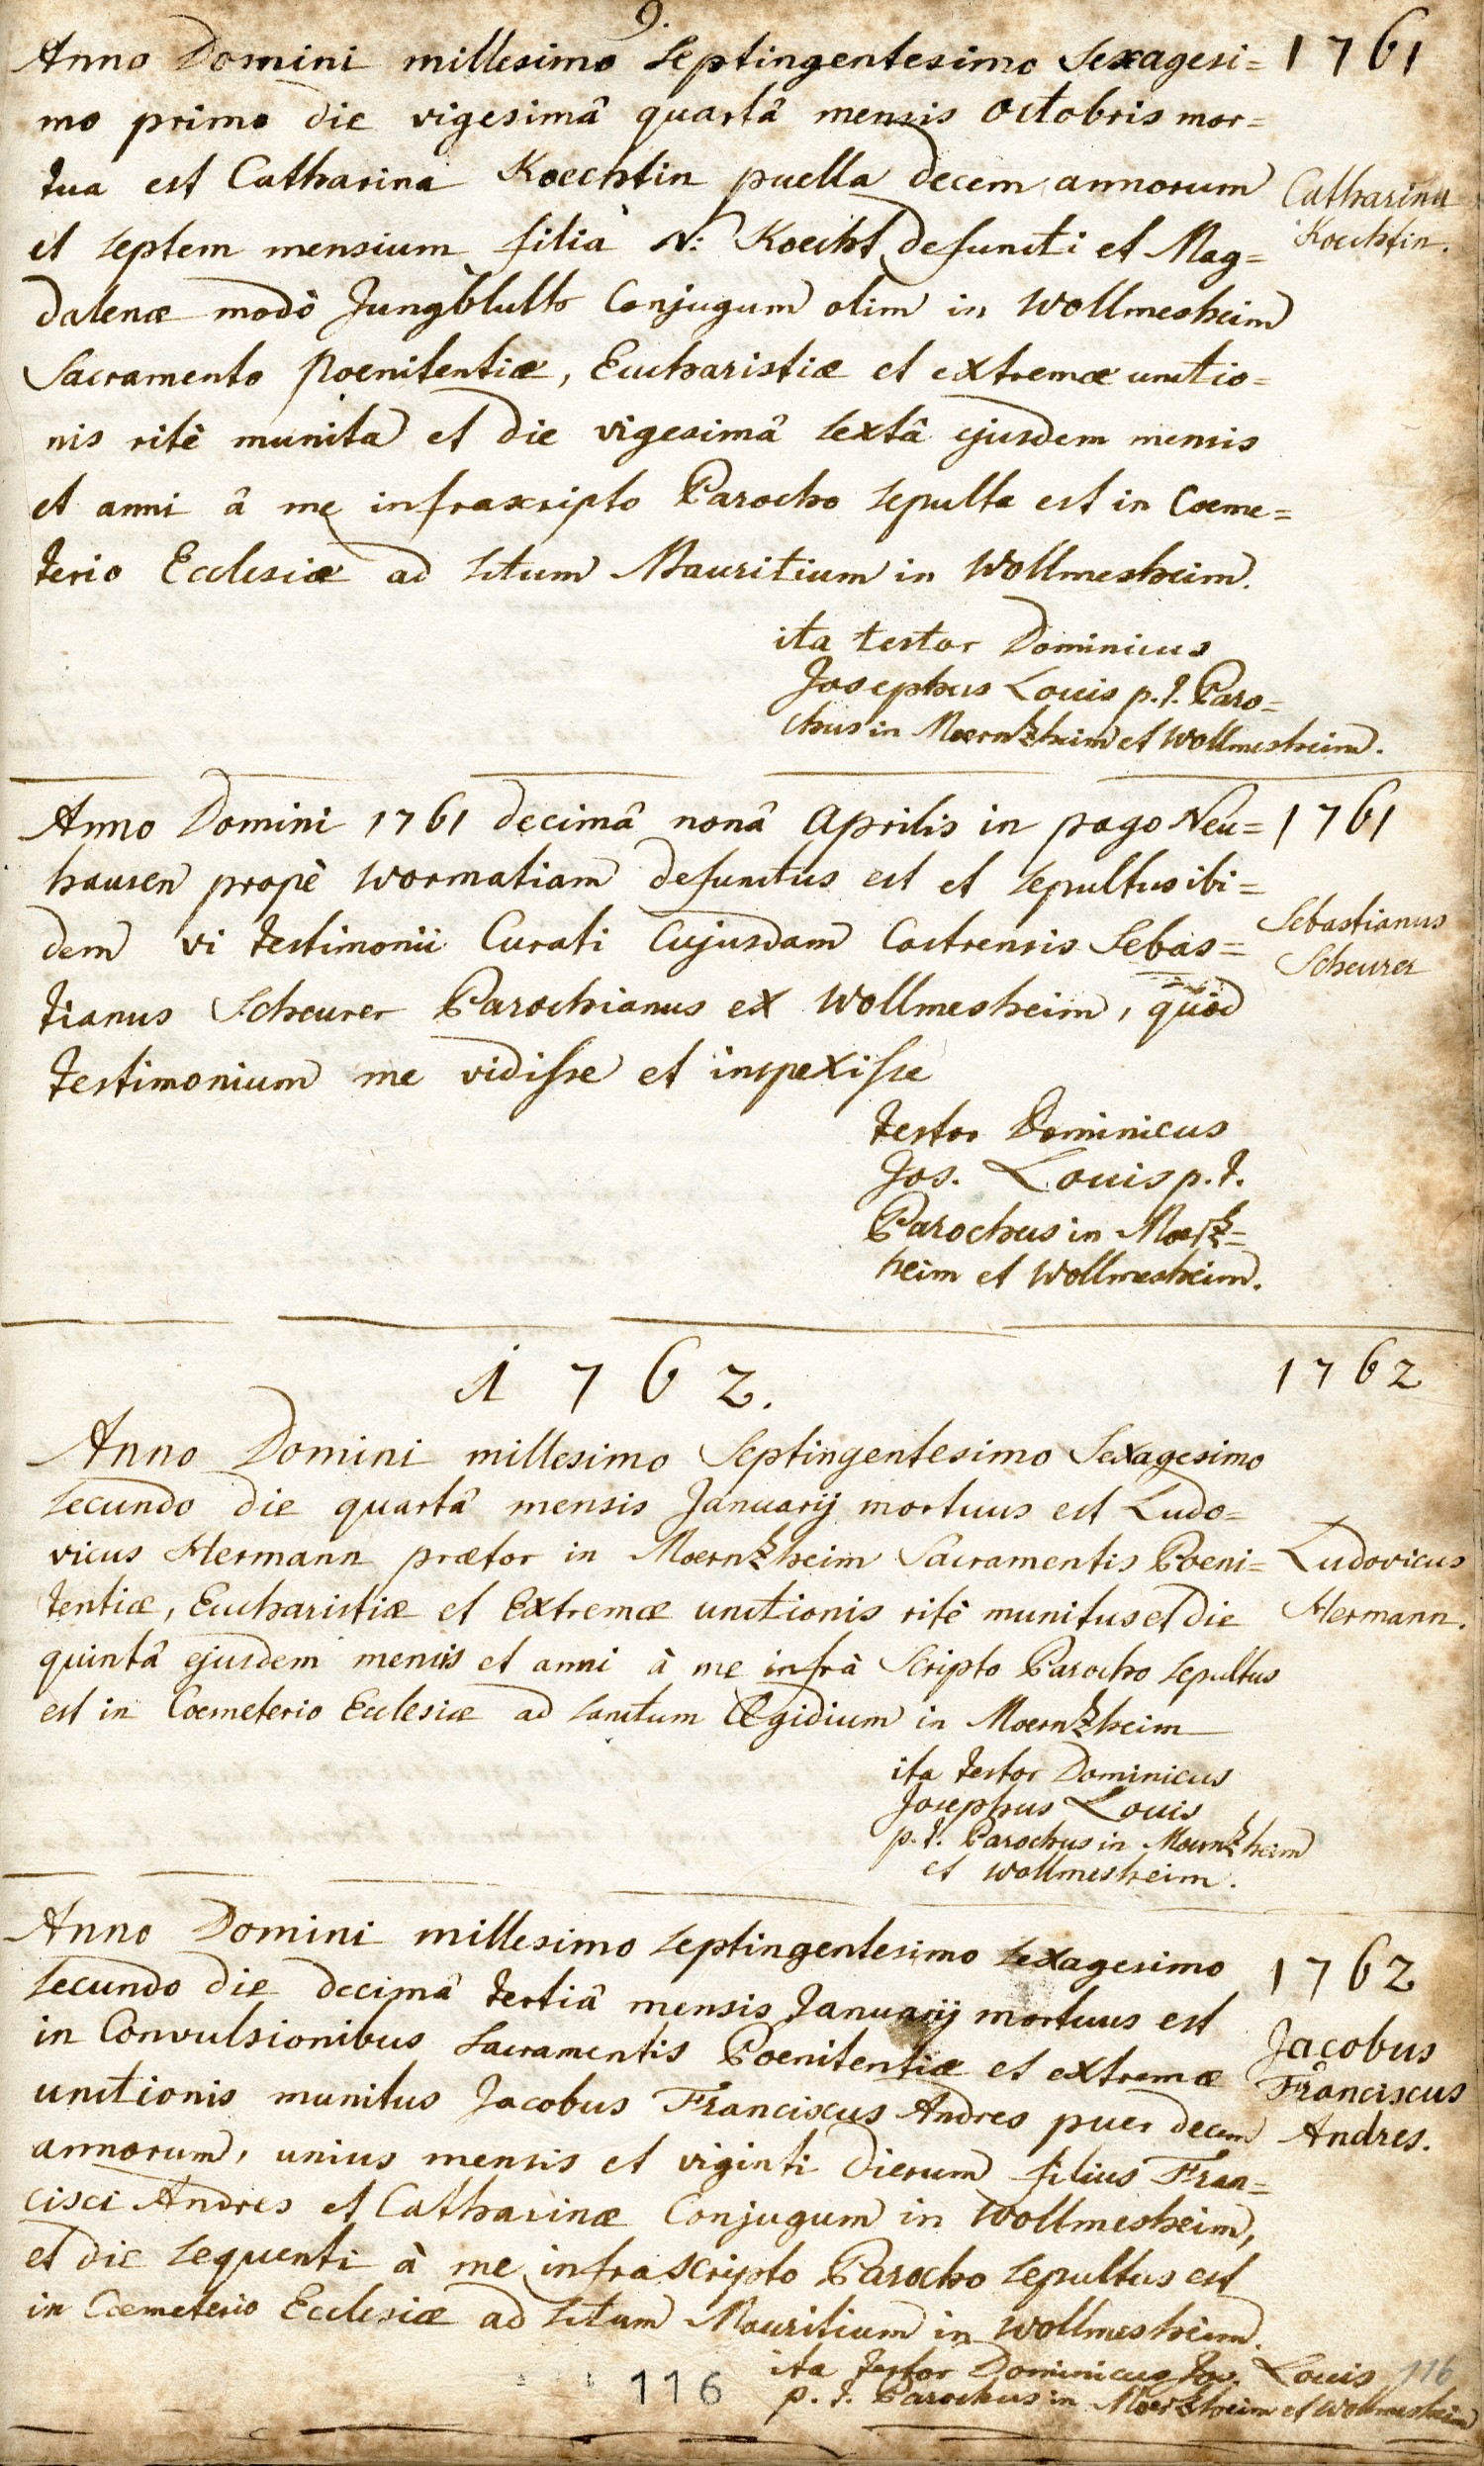 9.
Anno Domini millesimo Septingentesimo Sexagesi= 1761
mo primo die vigesimâ quartâ mensis octobris mor=
tua est Catharina Koechtin puella decem annorum Catharina
et septem mensium filia N: Koecht defuncti et Mag= Koechtin.
dalenæ modò Jungbluth Conjugum olim in Wollmesheim
Sacramento Poenitentiæ, Eucharistiæ et extremæ unctio=
nis ritè munita et die vigesimâ sextâ ejusdem mensis
et anni â me infrascripto Parocho sepulta est in Coeme=
terio Ecclesiæ ad Sctum Mauritium in Wollmesheim.
ita testor Dominicus
Josephus Louis p.t. Paro=
chus in Moernzheim et Wollmesheim.
Anno Domini 1761 decimâ nonâ Aprilis in pago Neu= 1761
hausen propè Wormatiam defunctus est et sepultus ibi=
dem vi testimonii Curati Cujusdam Castrensis Sebas= Sebastianus
tianus Scheurer Parochianus ex Wollmesheim, quod Scheurer
testimonium me vidisse et inspexisse
testor Dominicus
Jos. Louis p.t.
Parochus in Moerz=
heim et Wollmesheim.
1762. 1762
Anno Domini millesimo Septingentesimo Sexagesimo
secundo die quartâ mensis Januarij mortuus est Ludo=
vicus Hermann prætor in Moernzheim Sacramentis Poeni= Ludovicus
tentiæ, Eucharistiæ et Extremæ unctionis ritè munitus et die Hermann.
quintâ ejusdem mensis et anni à me infrà Scripto Parocho sepultus
est in Coemeterio Ecclesiæ ad sanctum Ægidium in Moernzheim
ita testor Dominicus
Josephus Louis
p.t. Parochus in Moernzheim
et Wollmesheim.
Anno Domini millesimo septingentesimo sexagesimo
secundo die decimâ tertiâ mensis Januarij mortuus est 1762
in Convulsionibus sacramentis Poenitentiæ et extremæ Jacobus
unctionis munitus Jacobus Franciscus Andres puer decem Franciscus
annorum, unius mensis et viginti dierum filius Fran= Andres.
cisci Andres et Catharinæ Conjugum in Wollmesheim,
et die sequenti à me infrascripto Parocho sepultus est
in Coemeterio Ecclesiæ ad Sctum Mauritium in Wollmesheim.
ita testor Dominicus Jos. Louis 116
116 p.t. Parochus in Moerzheim et Wollmesheim